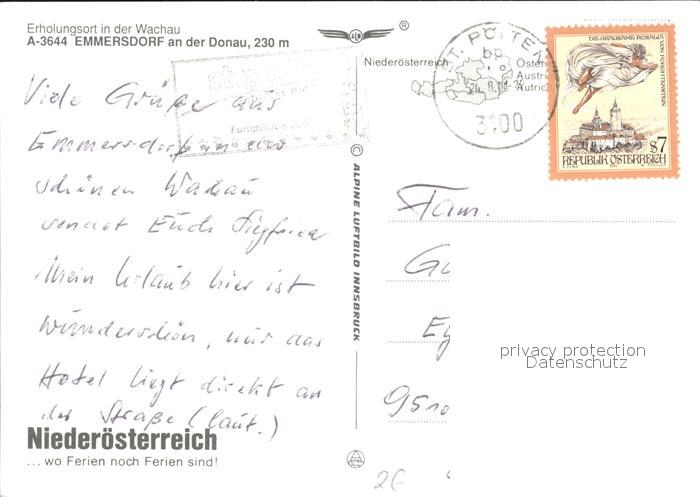 Erholungsort in der Wachau
A-3644 EMMERSDORF an der Donau, 230 m
ALM
®
Niederösterreich
ST. PÖLTEN
3100
DIE GRAUSAME ROSALIA VON FORCHTENSTEIN
S7
REPUBLIK ÖSTERREICH
Viele Grüße aus
Emmersdorf
schönen Wachau
sendet Euch Siegfried
Mein Urlaub hier ist
wunderschön, nur das
Hotel liegt direkt an
der Straße (laut.)
Niederösterreich
... wo Ferien noch Ferien sind!
© ALPINE LUFTBILD INNSBRUCK
Fam.
9510
privacy protection
Datenschutz